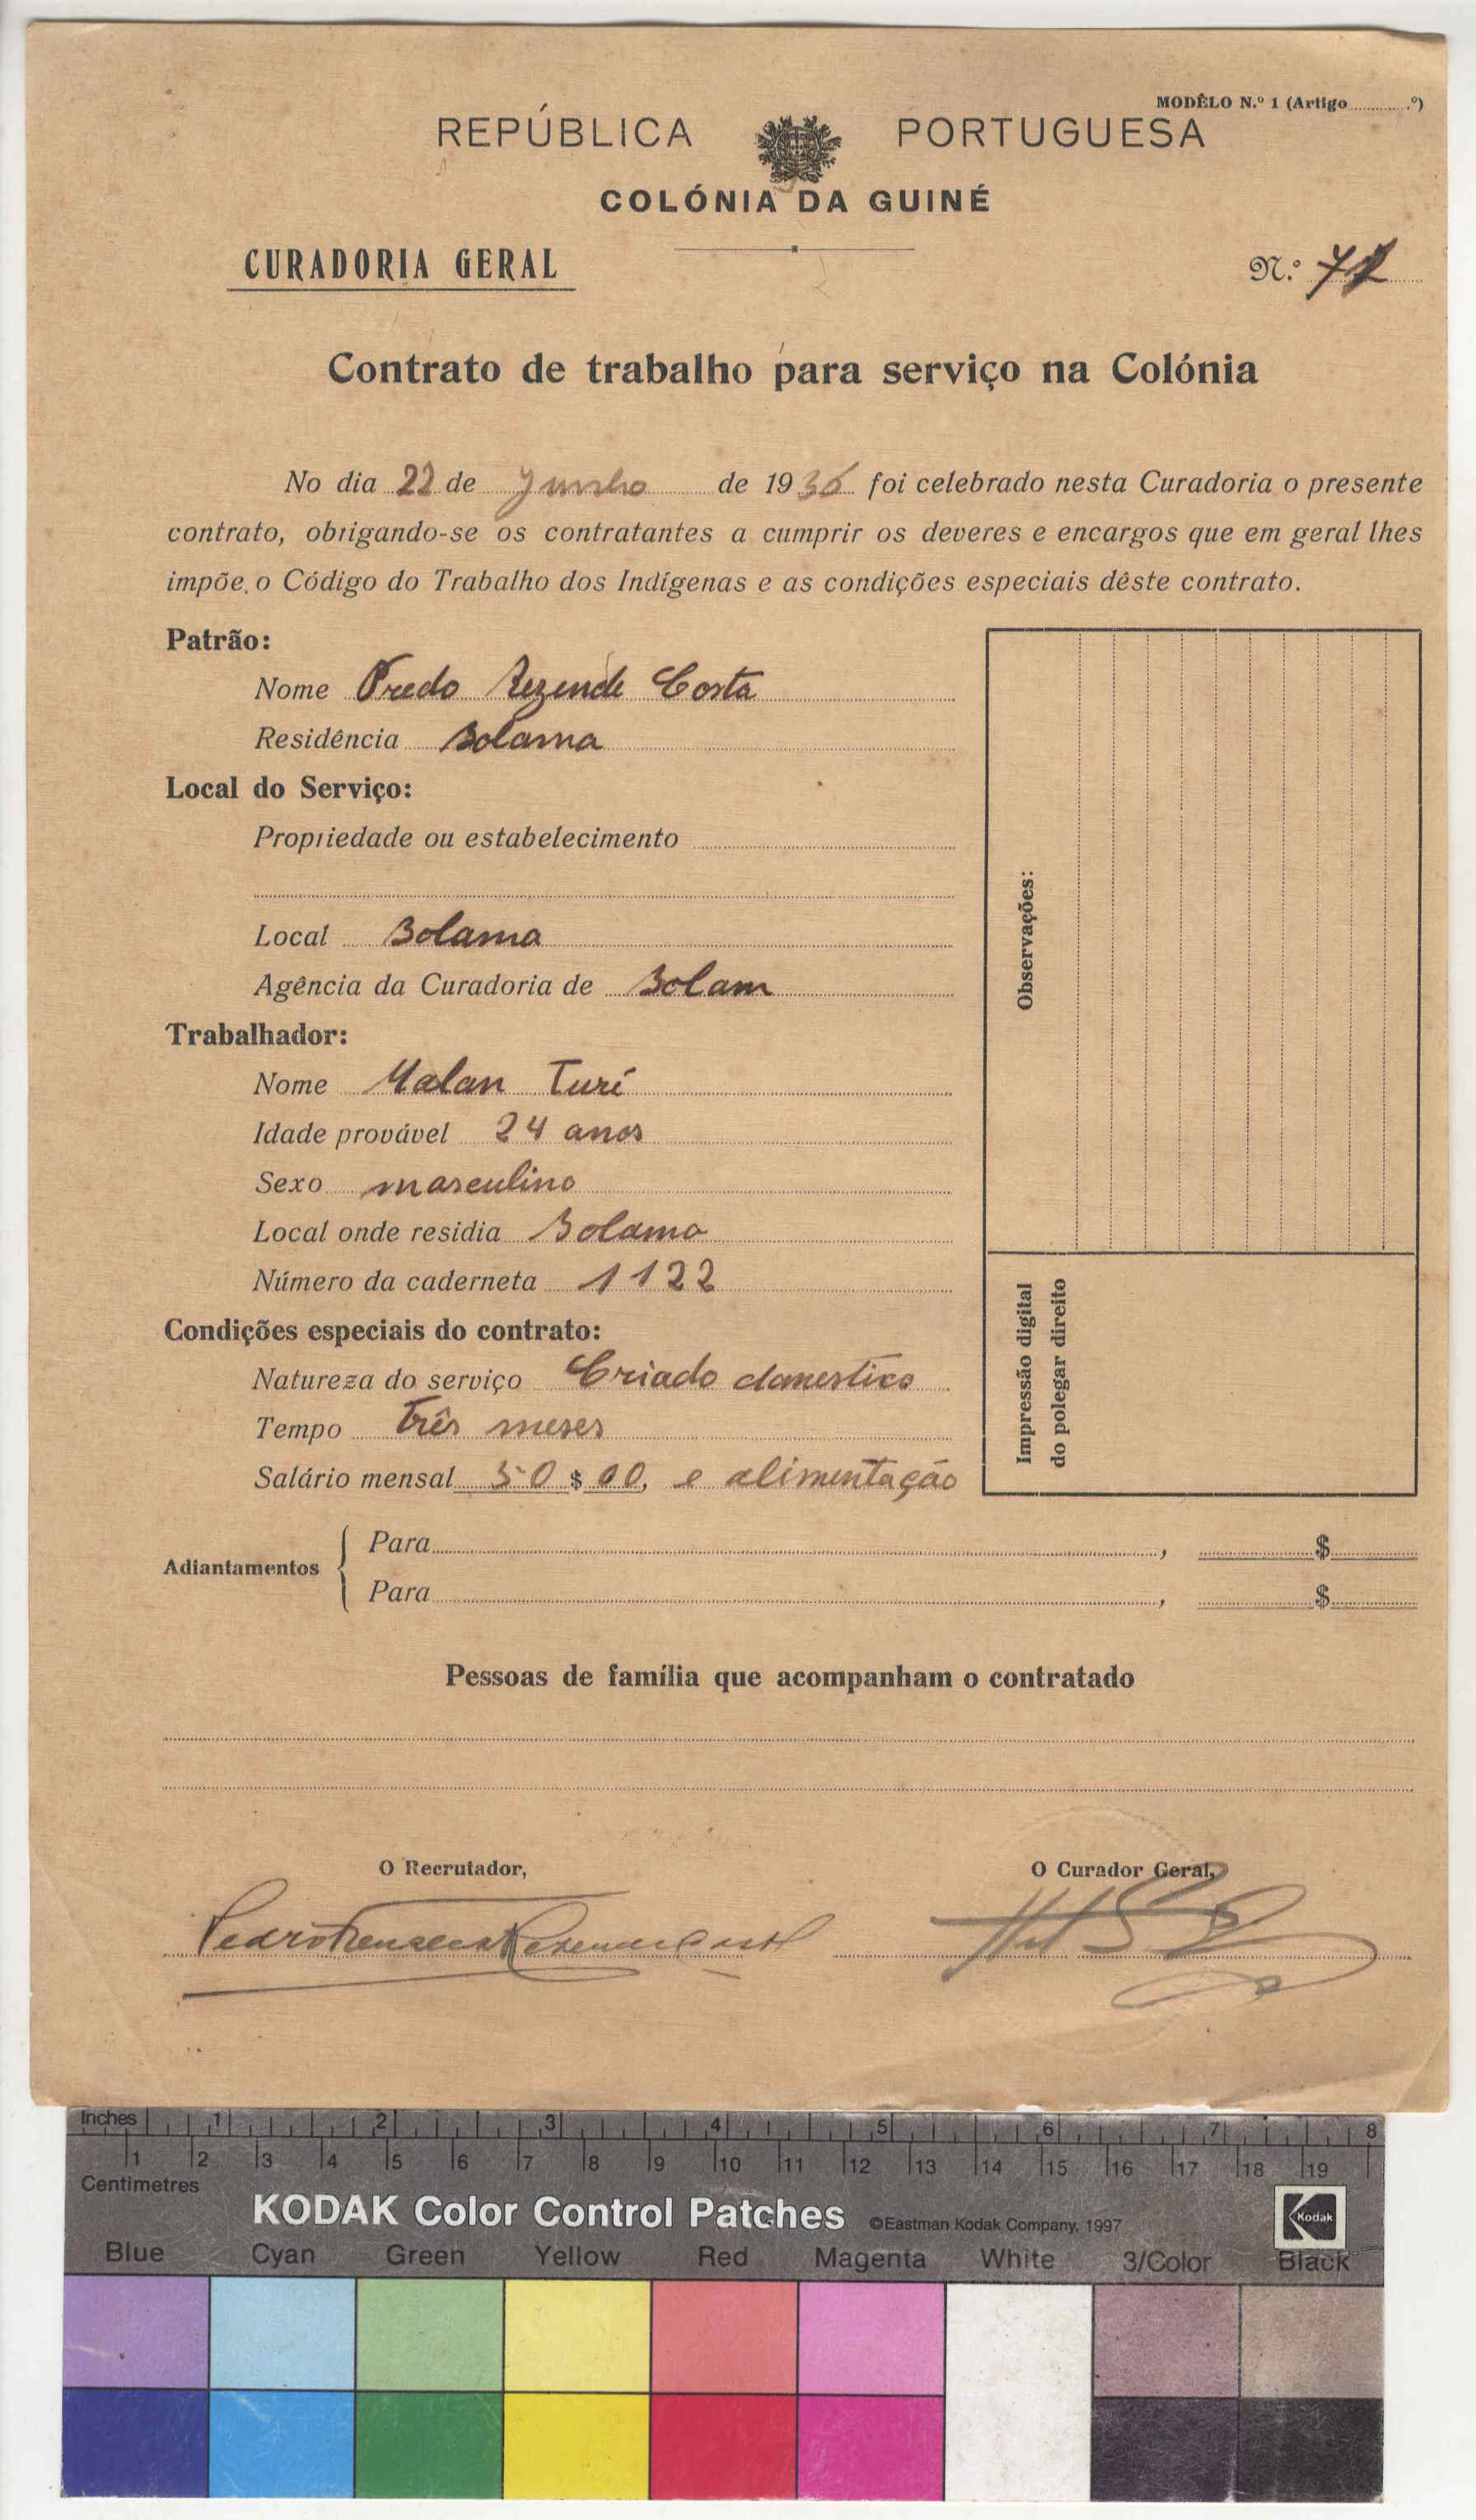 MODÊLO N.º 1 (Artigo ............º)
REPÚBLICA PORTUGUESA
COLÓNIA DA GUINÉ
CURADORIA GERAL
N.º
Contrato de trabalho para serviço na Colónia
No dia 22 de Junho de 1936 foi celebrado nesta Curadoria o presente
contrato, obrigando-se os contratantes a cumprir os deveres e encargos que em geral lhes
impõe, o Código do Trabalho dos Indígenas e as condições especiais dêste contrato.
Patrão:
Nome Rezende Costa
Residência Bolama
Local do Serviço:
Propriedade ou estabelecimento
Local Bolama
Agência da Curadoria de Bolam
Trabalhador:
Nome Malan Turé
Idade provável 24 anos
Sexo masculino
Local onde residia Bolama
Número da caderneta 1122
Condições especiais do contrato:
Natureza do serviço Criado domestico
Tempo Três meses
Salário mensal 50$00, e alimentação
Observações:
Impressão digital
do polegar direito
Adiantamentos
Para , $
Para , $
Pessoas de família que acompanham o contratado
O Recrutador,
O Curador Geral,
Inches 1 2 3 4 5 6 7 8
1 2 3 4 5 6 7 8 9 10 11 12 13 14 15 16 17 18 19
Centimetres
KODAK Color Control Patches ©Eastman Kodak Company, 1997 Kodak
Blue Cyan Green Yellow Red Magenta White 3/Color Black